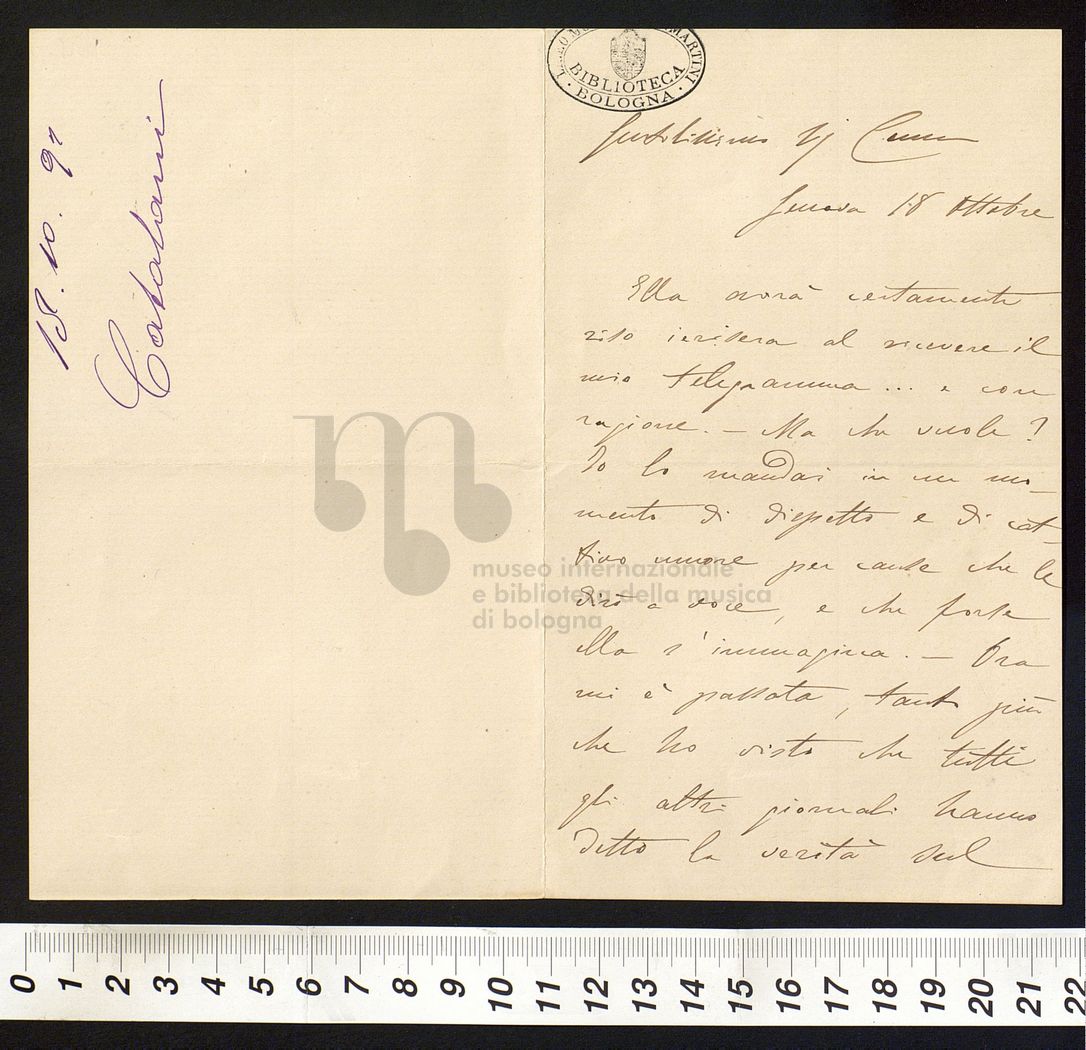 18.10.91
Catalani
BIBLIOTECA
BOLOGNA
MARTINI
Gentilissimo Sig
Genova 18 Ottobre
Ella avrà certamente
riso iersera al ricevere il
mio telegramma... e con
ragione. — Ma che vuole?
Io lo mandai in un mo-
mento di dispetto e di cat-
tivo umore per cause che le
dirò a voce, e che forse
ella s'immagina. — Ora
mi è passata, tanto più
che ho visto che tutti
gli altri giornali hanno
detto la verità sul
museo internazionale
e biblioteca della musica
di bologna
0 1 2 3 4 5 6 7 8 9 10 11 12 13 14 15 16 17 18 19 20 21 22